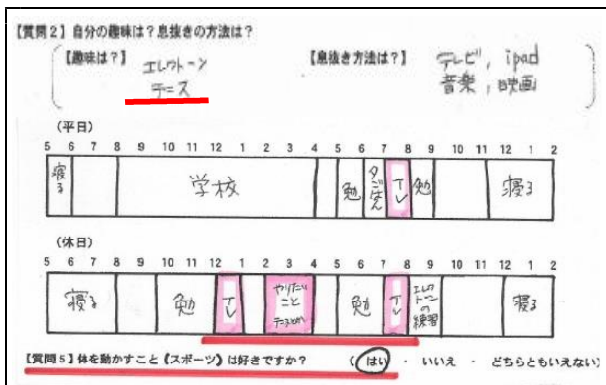 【質問２】自分の趣味は？息抜きの方法は？
【趣味は？】 エレクトーン
テニス
【息抜き方法は？】 テレビ, ipad
音楽, 映画
(平日)
5 6 7 8 9 10 11 12 1 2 3 4 5 6 7 8 9 10 11 12 1 2
寝る 学校 勉 夕ごはん TV 勉 寝る
(休日)
5 6 7 8 9 10 11 12 1 2 3 4 5 6 7 8 9 10 11 12 1 2
寝る 勉 TV やりたいこと テニスとか 勉 TV エレクトーンの練習 寝る
【質問５】体を動かすこと（スポーツ）は好きですか？ （ はい ・ いいえ ・ どちらともいえない）